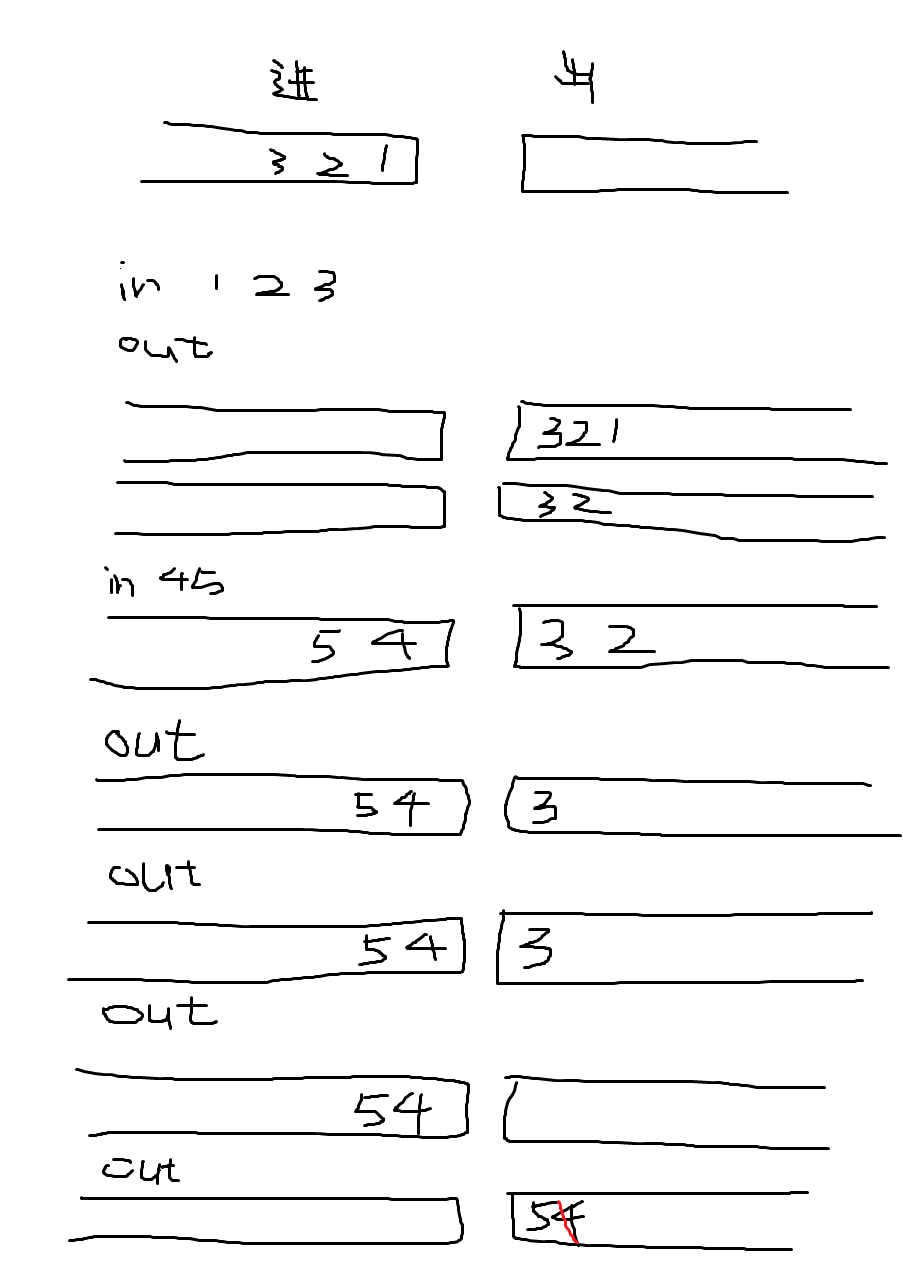 进 出
3 2 1
in 1 2 3
out
321
32
in 45
5 4 3 2
out
54 3
out
54 3
out
54
out
54